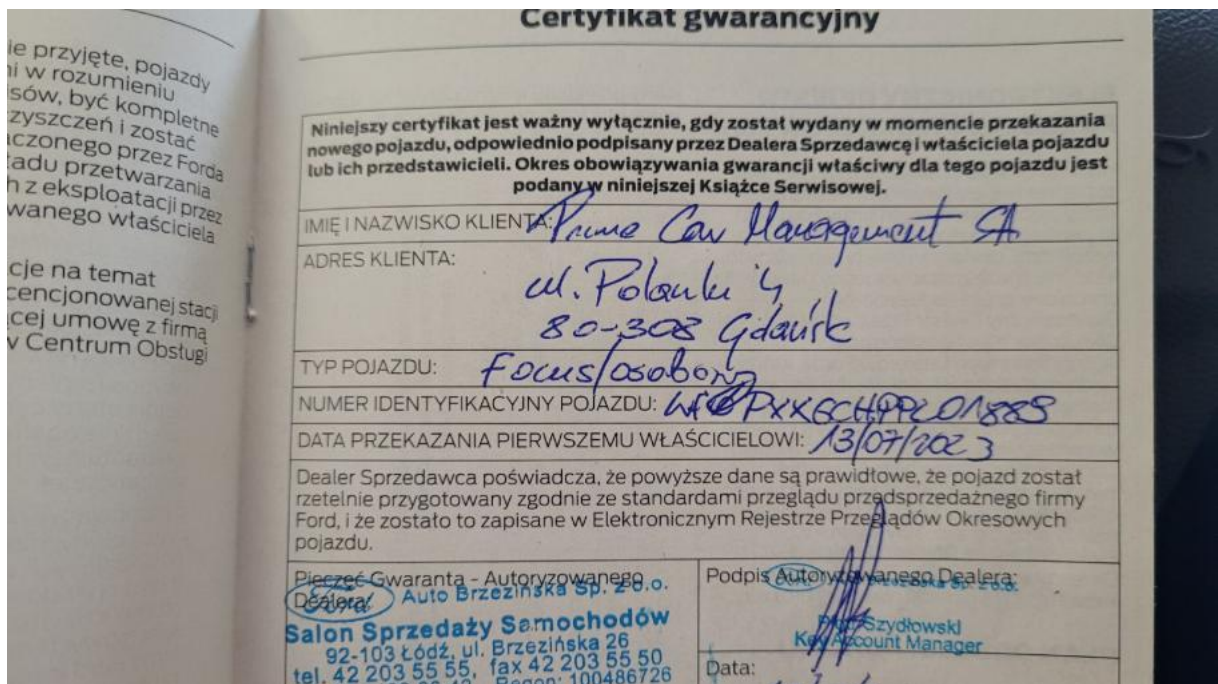 ie przyjęte, pojazdy
ni w rozumieniu
sów, być kompletne
zyszczeń i zostać
czonego przez Forda
adu przetwarzania
h z eksploatacji przez
wanego właściciela
cje na temat
cencjonowanej stacji
cej umowę z firmą
v Centrum Obsługi
Certyfikat gwarancyjny
Niniejszy certyfikat jest ważny wyłącznie, gdy został wydany w momencie przekazania
nowego pojazdu, odpowiednio podpisany przez Dealera Sprzedawcę i właściciela pojazdu
lub ich przedstawicieli. Okres obowiązywania gwarancji właściwy dla tego pojazdu jest
podany w niniejszej Książce Serwisowej.
IMIĘ I NAZWISKO KLIENTA: Prime Car Management SA
ADRES KLIENTA:
ul. Polanki 4
80-308 Gdańsk
TYP POJAZDU: Focus/osobowy
NUMER IDENTYFIKACYJNY POJAZDU:
DATA PRZEKAZANIA PIERWSZEMU WŁAŚCICIELOWI: 13/07/2023
Dealer Sprzedawca poświadcza, że powyższe dane są prawidłowe, że pojazd został
rzetelnie przygotowany zgodnie ze standardami przeglądu przedsprzedażnego firmy
Ford, i że zostało to zapisane w Elektronicznym Rejestrze Przeglądów Okresowych
pojazdu.
Pieczęć Gwaranta - Autoryzowanego
Dealera:
Ford Auto Brzezińska Sp. z o.o.
Salon Sprzedaży Samochodów
92-103 Łódź, ul. Brzezińska 26
tel. 42 203 55 55, fax 42 203 55 50
Regon: 100486726
Podpis Autoryzowanego Dealera:
Szydłowski
Key Account Manager
Data: